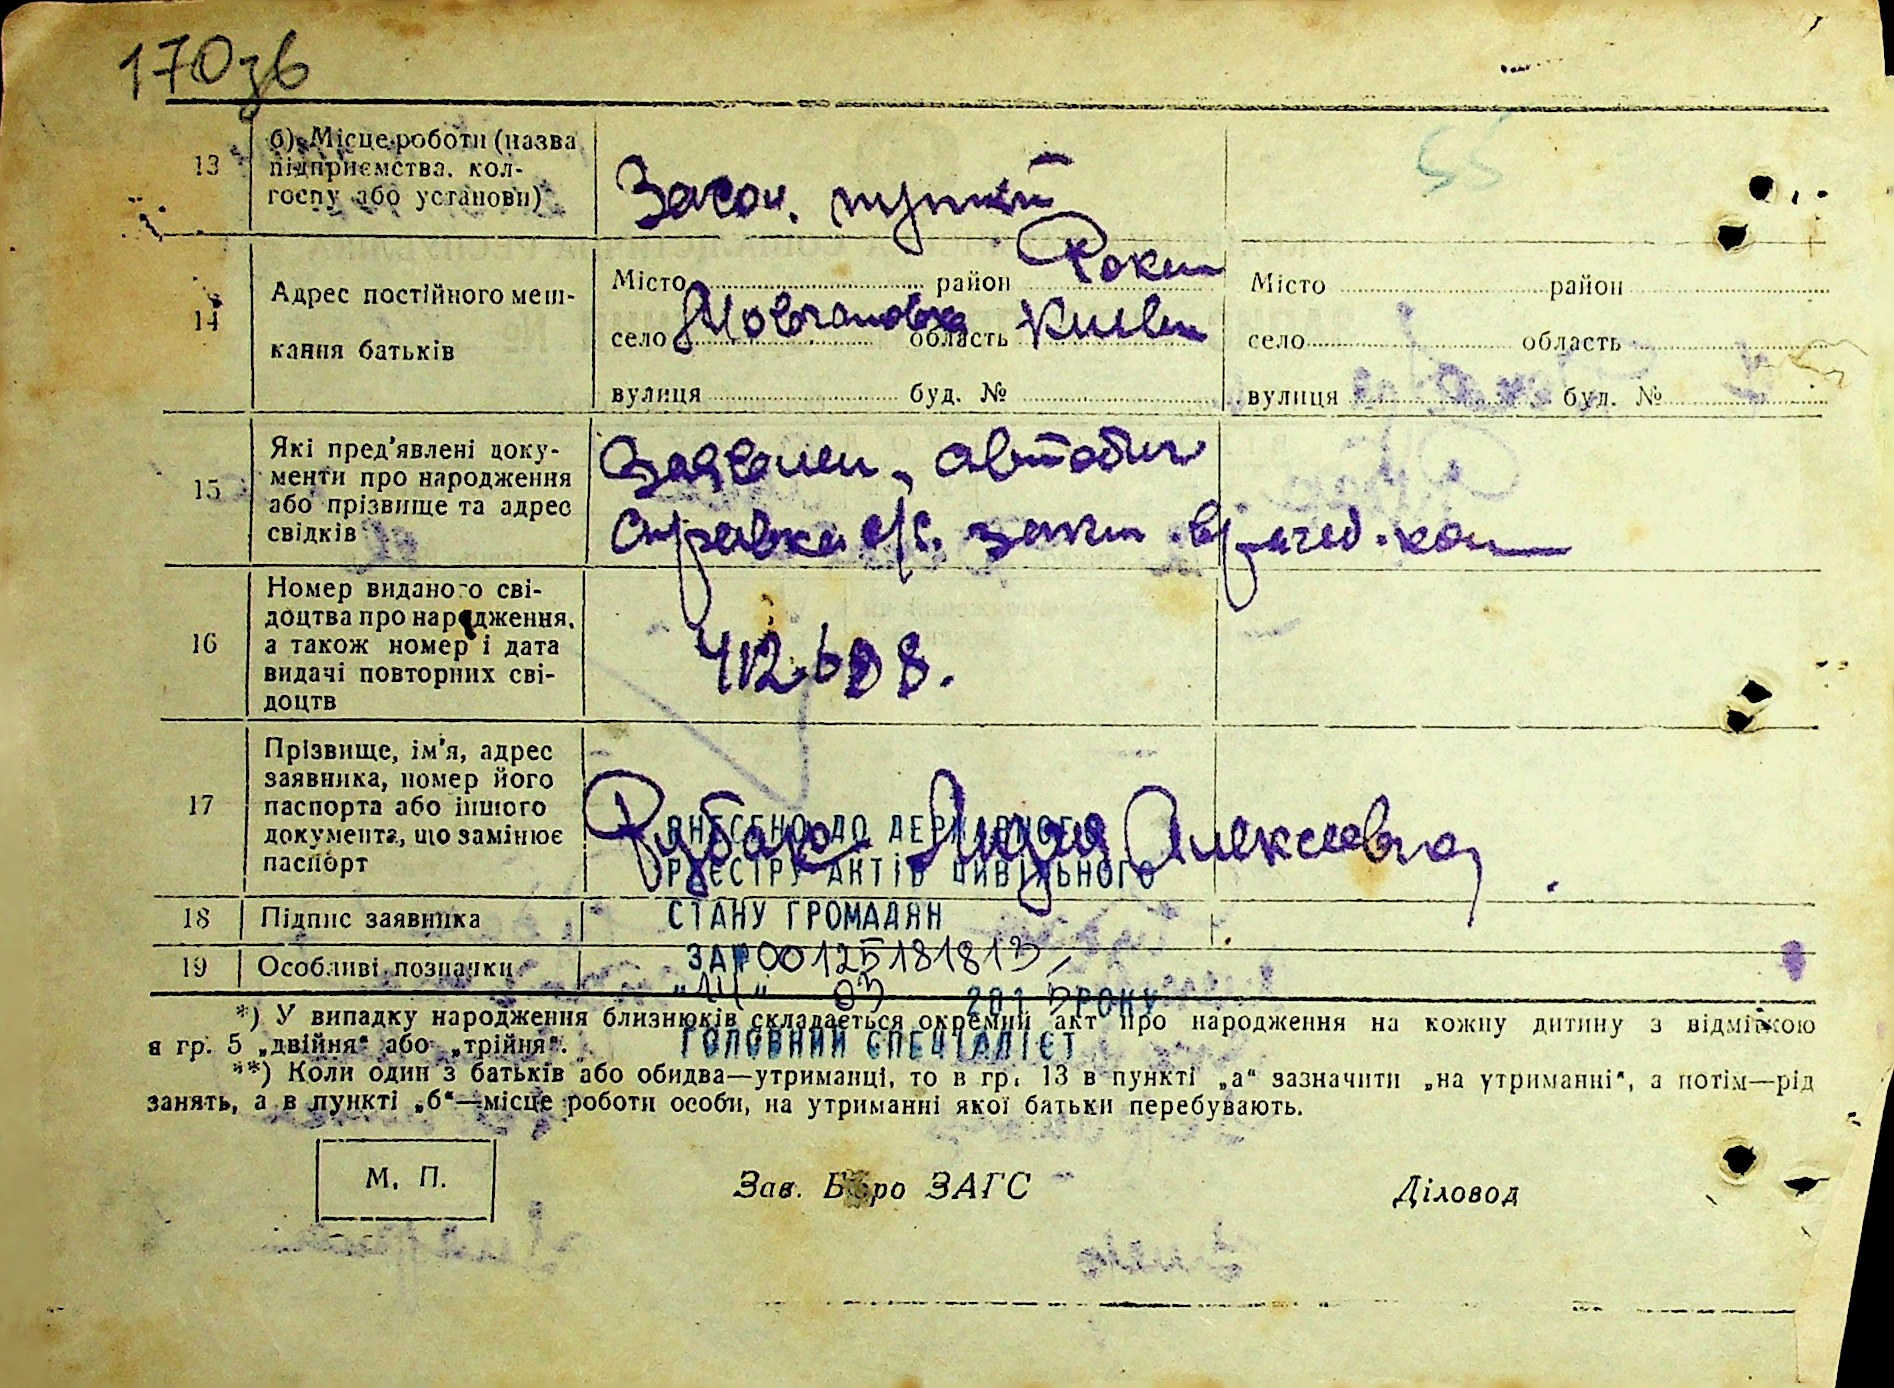 170зв
13
б) Місце роботи (назва
підприємства, кол-
госпу або установи)
Загот. пункт
55
14
Адрес постійного меш-
кання батьків
Місто район Рокит
село Мовчановка область Київ
вулиця буд. №
Місто район
село область
вулиця буд. №
15
Які пред'явлені доку-
менти про народження
або прізвище та адрес
свідків
Заявлен., автобіог
Справка с/с. закл. врачеб. ком
16
Номер виданого сві-
доцтва про народження,
а також номер і дата
видачі повторних сві-
доцтв
412688.
17
Прізвище, ім'я, адрес
заявника, номер його
паспорта або іншого
документа, що замінює
паспорт
Рубан Лидия Алексеевна
ВНЕСЕНО ДО ДЕРЖАВНОГО
РЕЄСТРУ АКТІВ ЦИВІЛЬНОГО
18
Підпис заявника
СТАНУ ГРОМАДЯН
19
Особливі позначки
ЗА № 00125181813
РОКУ
*) У випадку народження близнюків складається окремий акт про народження на кожну дитину з відміткою
в гр. 5 „двійня“ або „трійня“.
ГОЛОВНИЙ СПЕЦІАЛІСТ
**) Коли один з батьків або обидва—утриманці, то в гр. 13 в пункті „а“ зазначити „на утриманні“, а потім—рід
занять, а в пункті „б“—місце роботи особи, на утриманні якої батьки перебувають.
М. П.
Зав. Бюро ЗАГС
Діловод